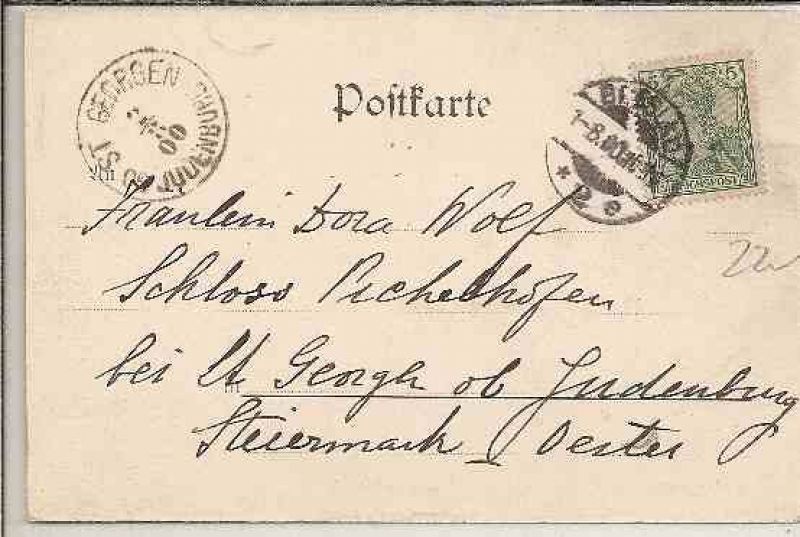 Postkarte
ST GEORGEN OB JUDENBURG
00
BRESLAU
1-8.00
* 2 e
5 5
REICHSPOST
An
Fräulein Dora Wolf
Schloss Pichelhofen
bei St. Georgen ob Judenburg
Steiermark Oester